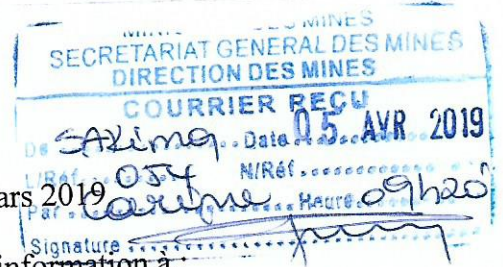 DES MINES
SECRETARIAT GENERAL DES MINES
DIRECTION DES MINES
COURRIER REÇU
De SAKIMA Date 05 AVR 2019
L/Réf. 054 N/Réf.
ars 2019
Par Carine Heure 09h20
Signature
information à :